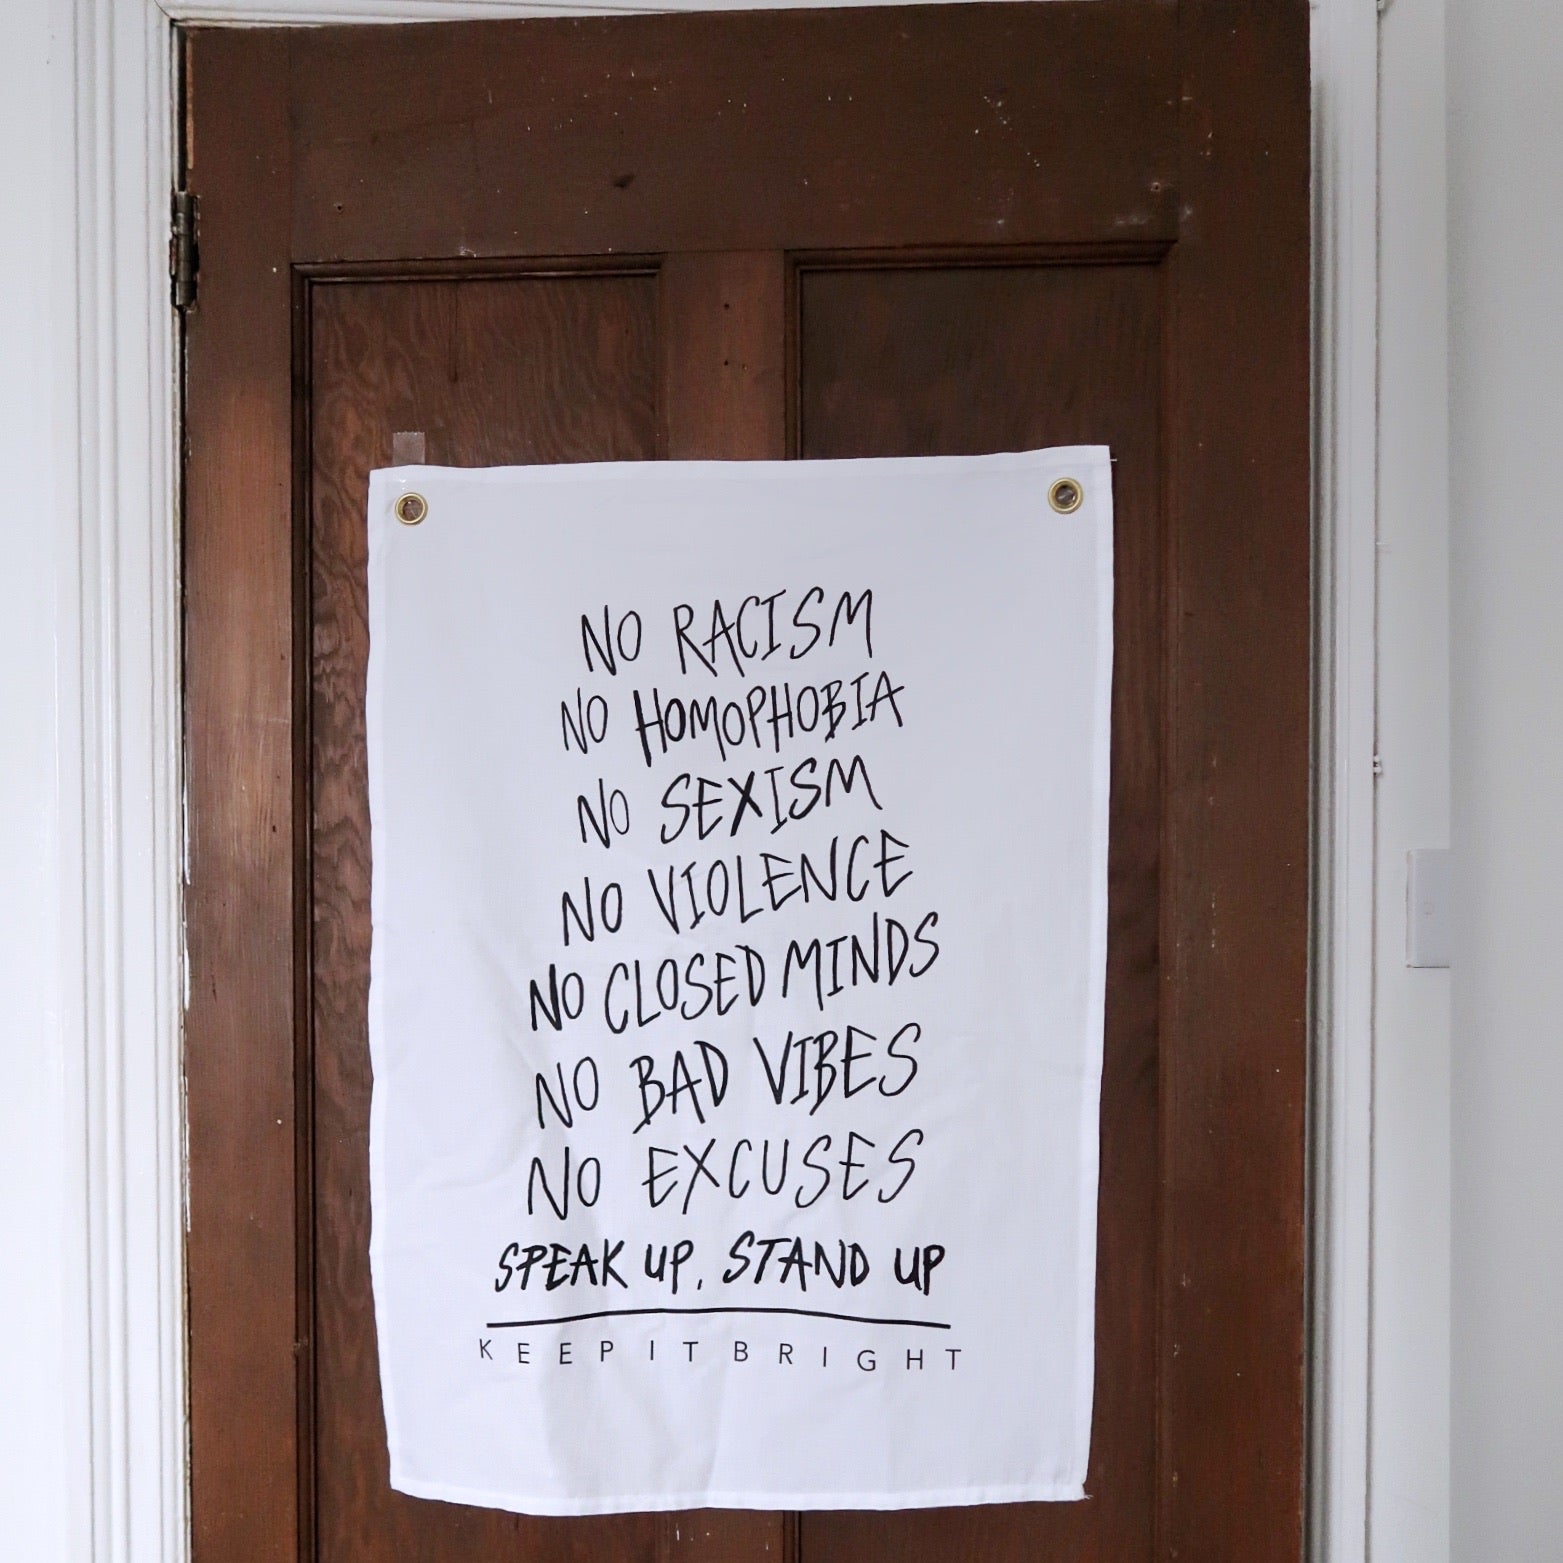 NO RACISM
NO HOMOPHOBIA
NO SEXISM
NO VIOLENCE
NO CLOSED MINDS
NO BAD VIBES
NO EXCUSES
SPEAK UP, STAND UP
KEEPITBRIGHT